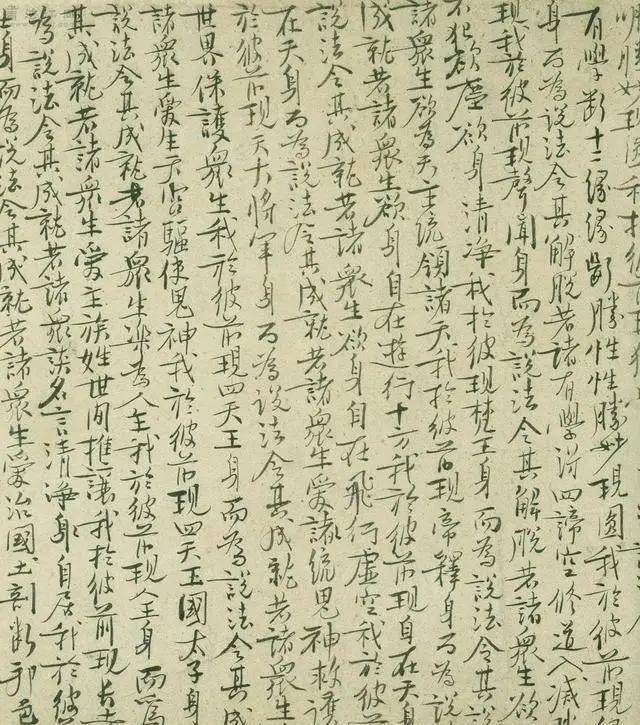 明勝妙現圓我於彼前現獨
有學斷十二緣緣斷勝性性勝妙現圓我於彼前現緣
身而為說法令其解脫若諸有學得四諦空修道入滅
現我於彼前現聲聞身而為說法令其解脫若諸眾生欲
不犯欲塵欲身清淨我於彼現梵王身而為說法令其
諸眾生欲為天主統領諸天我於彼前現帝釋身而為說
成就若諸眾生欲身自在遊行十方我於彼前現自在天身
說法令其成就若諸眾生欲身自在飛行虛空我於彼
在天身而為說法令其成就若諸眾生愛諸統鬼神救護
於彼前現天大將軍身而為說法令其成就若諸眾生
世界保護眾生我於彼前現四天王身而為說法令其成
諸眾生愛生天宮驅使鬼神我於彼前現四天王國太子身
說法令其成就若諸眾生樂為人王我於彼前現人王身而為
其成就若諸眾生愛主族姓世間推讓我於彼前現長者
為說法令其成就若諸眾談名言清淨身自居我於彼前
士身而為說法令其成就若諸眾生愛治國土剖斷邦邑